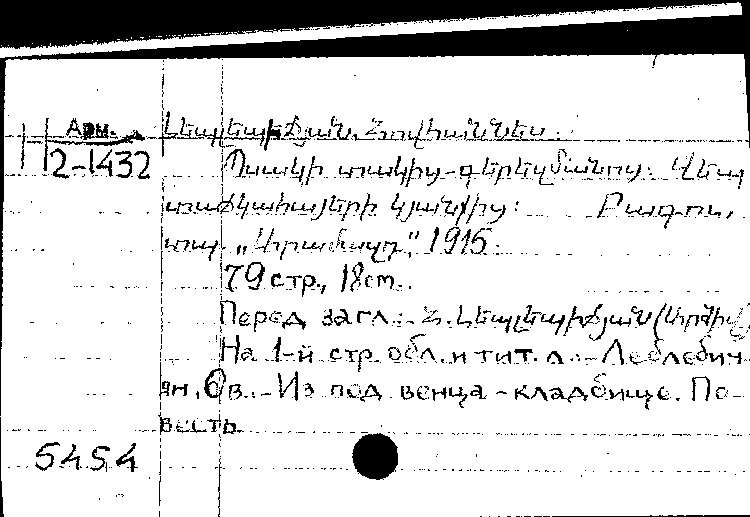 Арм.
2-1432
Լեպլեպիճյան, Հովհաննես.
Պսակի տակից-գերեզմանոց: Վեպ
տաճկահայերի կյանքից: Բագու,
տպ. „Արամազդ“, 1915.
79 стр., 18 см.
Перед загл.: Հ. Լեպլեպիճյան
На 1-й стр. обл. и тит. л.: - Леблебич-
ян, Ов. - Из под венца - кладбище. По-
весть.
5454